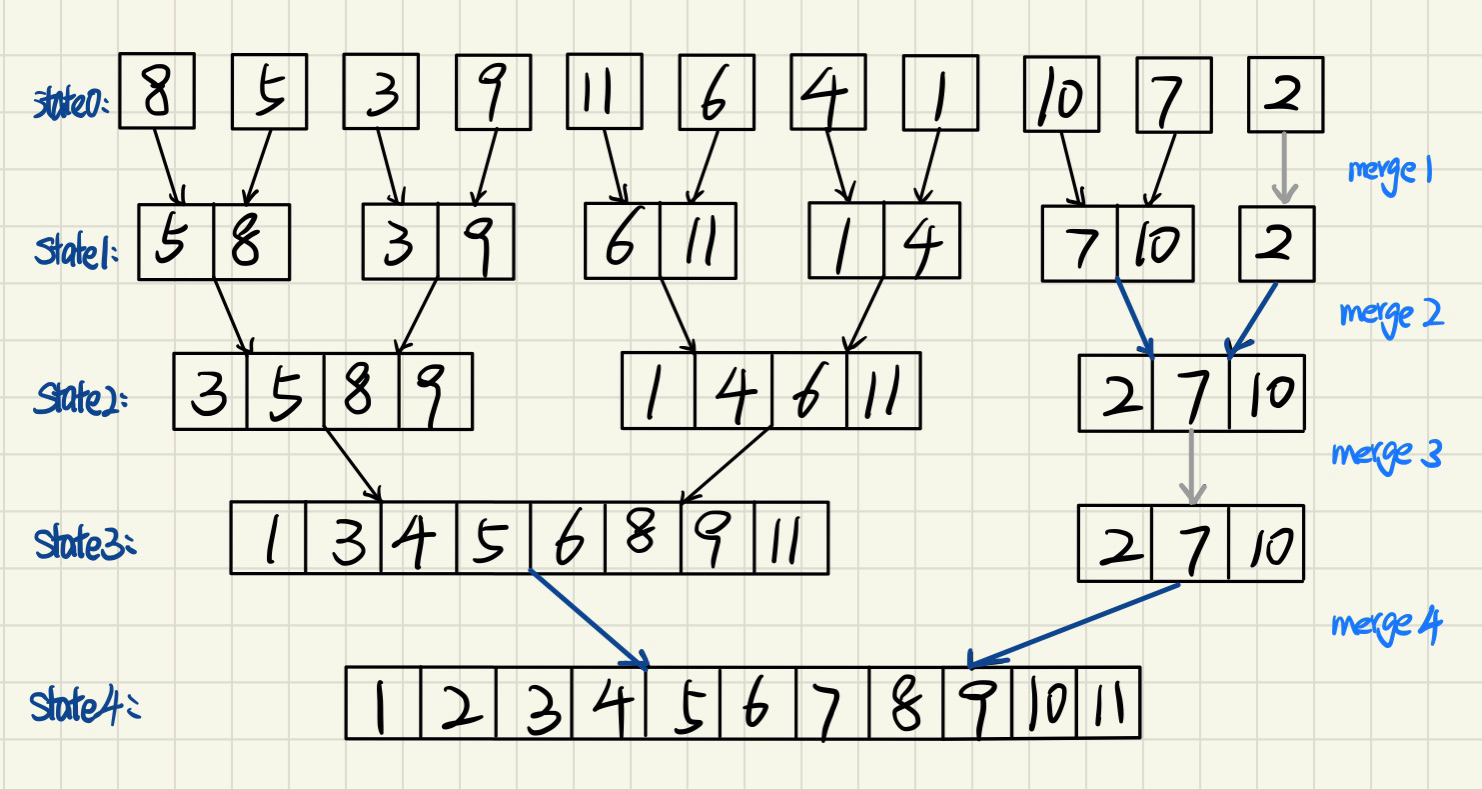 state0: 8 5 3 9 11 6 4 1 10 7 2
merge 1
State1: 5 8 3 9 6 11 1 4 7 10 2
merge 2
State2: 3 5 8 9 1 4 6 11 2 7 10
merge 3
State3: 1 3 4 5 6 8 9 11 2 7 10
merge 4
State4: 1 2 3 4 5 6 7 8 9 10 11